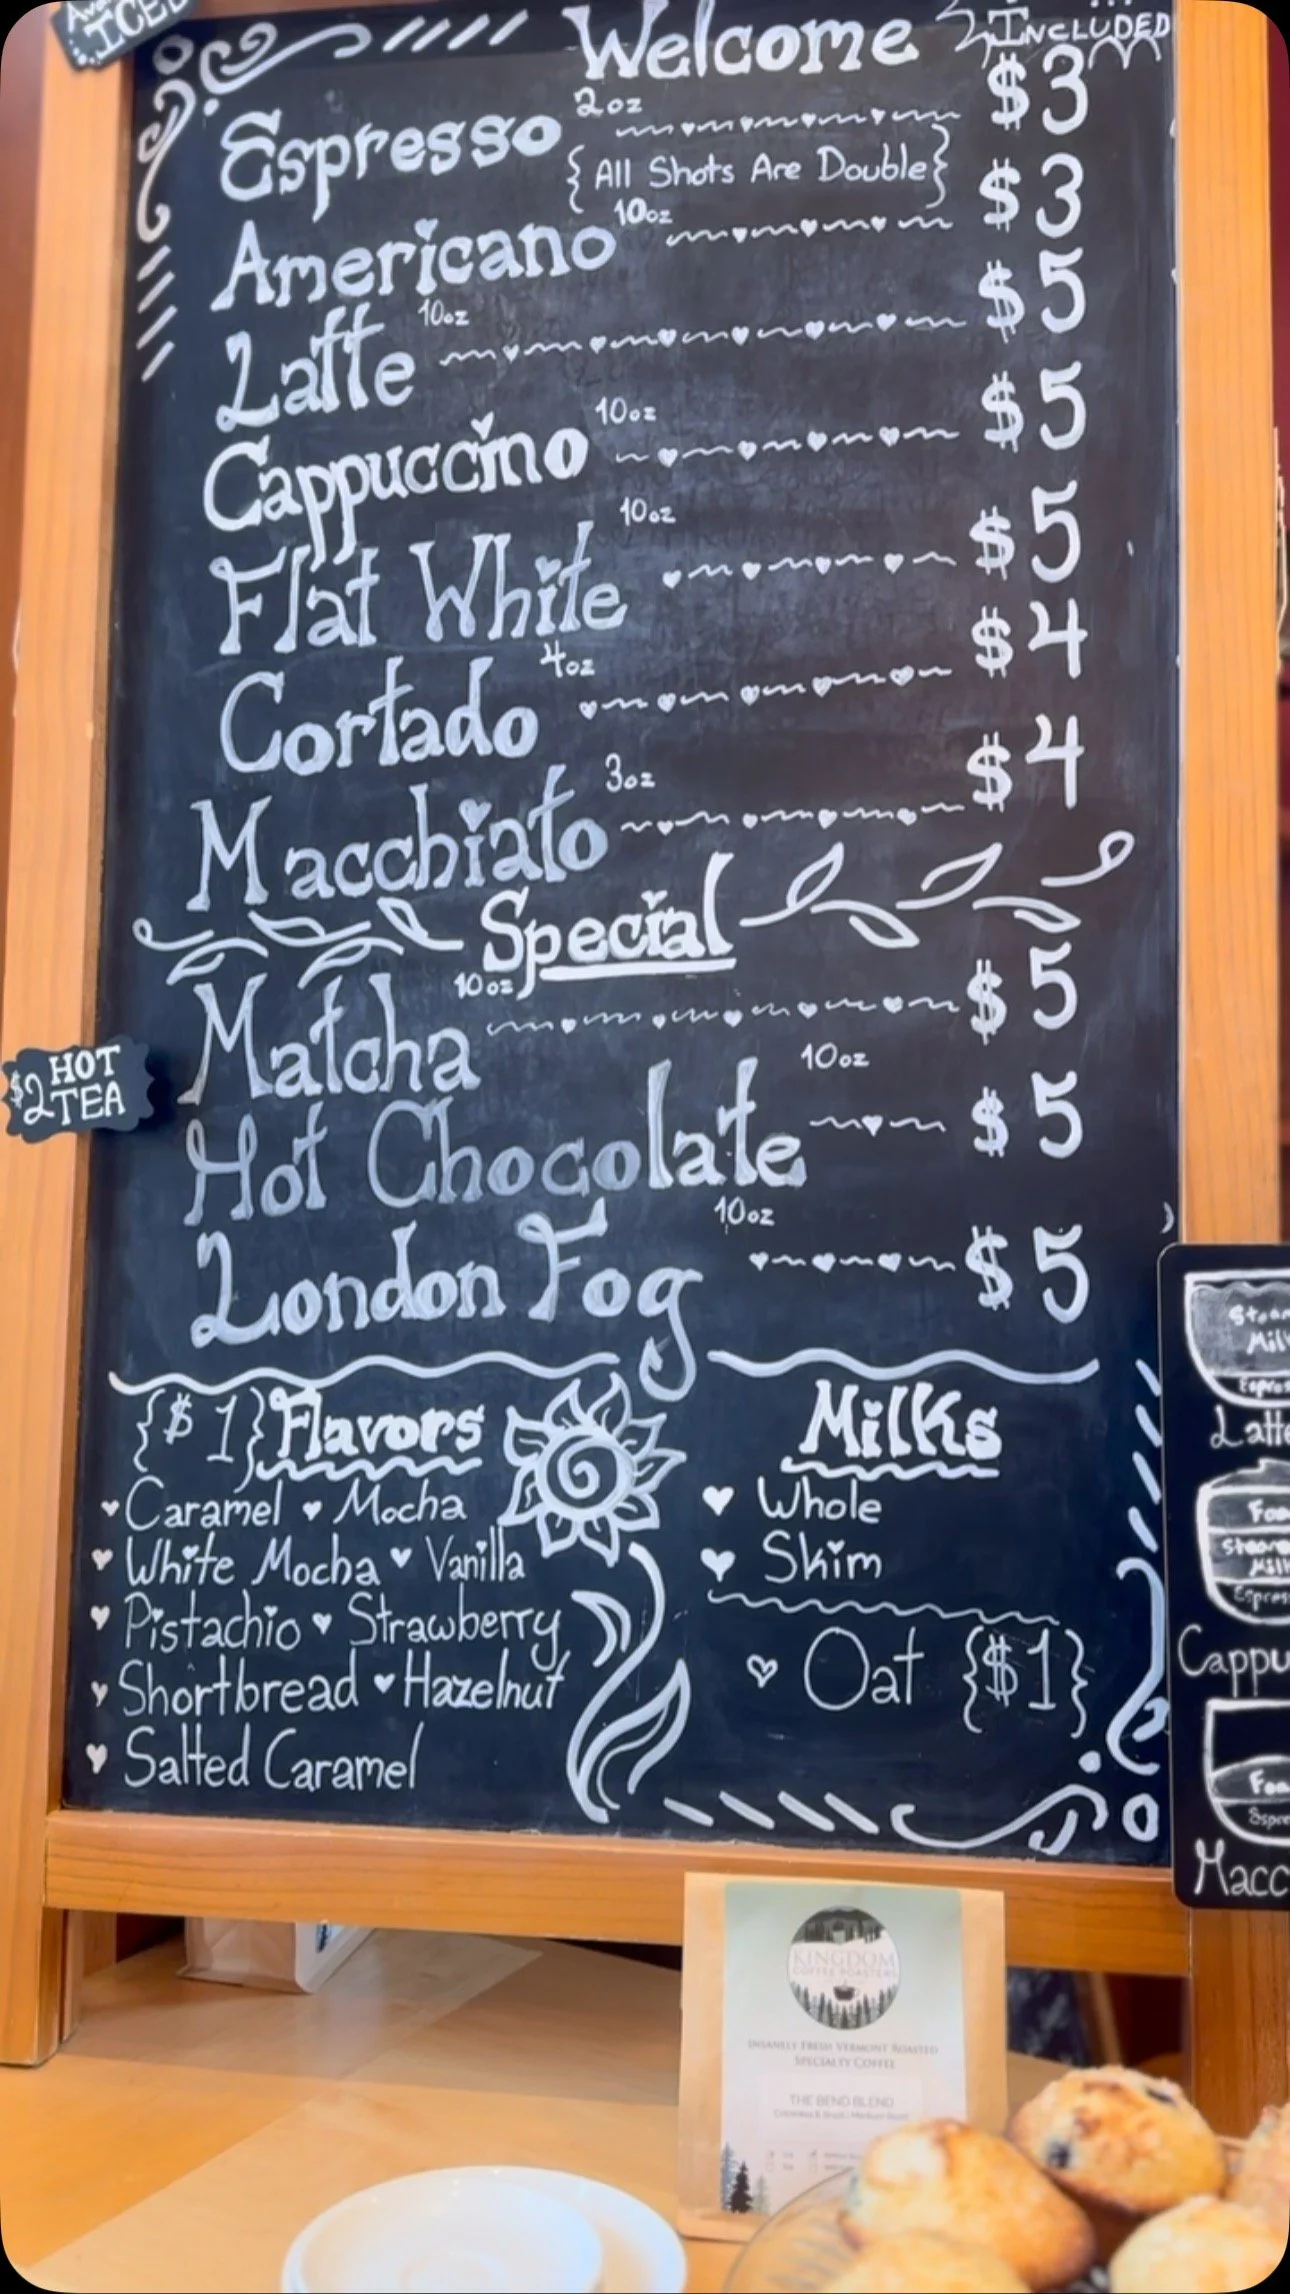 ICED
Welcome
INCLUDED
Espresso 2oz $3
{All Shots Are Double}
Americano 10oz $3
Latte 10oz $5
Cappuccino 10oz $5
Flat White 10oz $5
Cortado 4oz $4
Macchiato 3oz $4
Special
Matcha 10oz $5
$2 HOT
TEA
Hot Chocolate 10oz $5
London Fog 10oz $5
{$1} Flavors
Caramel ♥ Mocha
White Mocha ♥ Vanilla
Pistachio ♥ Strawberry
Shortbread ♥ Hazelnut
Salted Caramel
Milks
Whole
Skim
Oat {$1}
Latte
Cappu
Macc
KINGDOM
COFFEE ROASTERS
INSANELY FRESH VERMONT ROASTED
SPECIALTY COFFEE
THE BEND BLEND